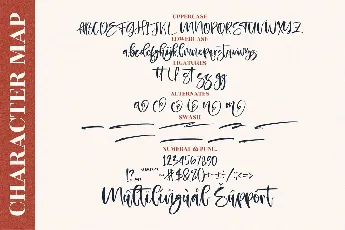 CHARACTER MAP
UPPERCASE
ABCDEFGHIJKLMNOPQRSTUVWXYZ
LOWERCASE
abcdefghijklmnopqrstuvwxyz
LIGATURES
tt ll st gg
ALTERNATES
SWASH
NUMERAL & PUNC.
1234567890
Multilingual Support